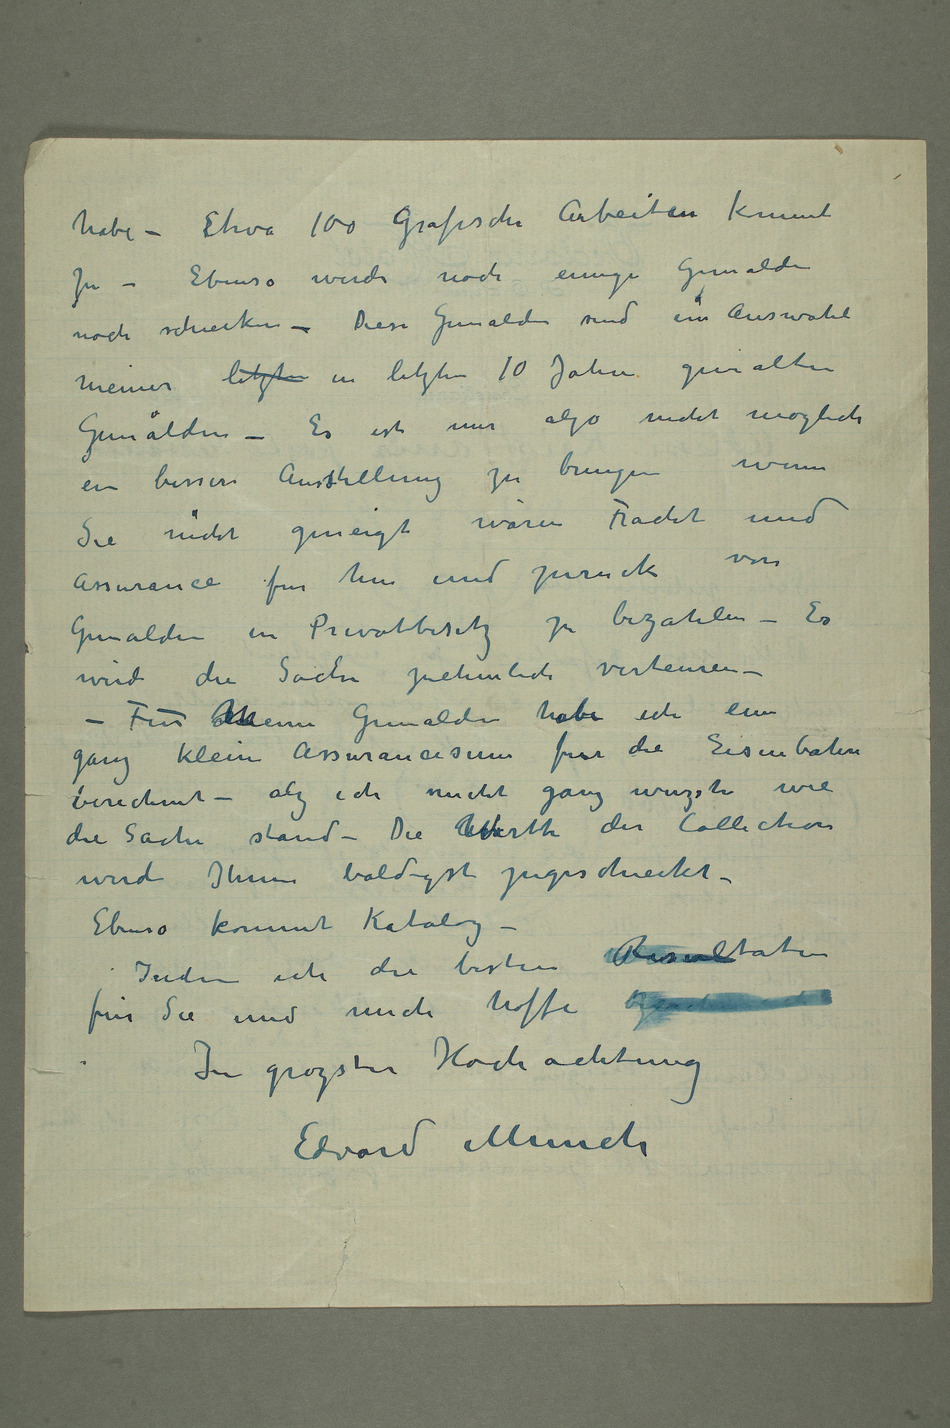 habe – Etwa 100 Grafische Arbeiten kommt
zu – Ebenso werde noch einige Gemälde
noch schicken – Diese Gemälde sind ein Auswahl
meiner letzte in letzte 10 Jahre gemalten
Gemålden – Es ist mir alzo nicht möglich
ein bessere Ausstellung zu bringen wenn
Sie nicht geneigt wären Fracht und
Assurance für hin und zurück von
Gemälden in Privatbesitz zu bezahlen – Es
wird die Sache ziehmlich verteuren –
– Für Meine Gemälden habe ich eine
ganz kleine Assurancesum für die Eisenbahn
berechnet – alz ich nicht ganz wuzste wie
die Sache stand – Die Werthe der Collection
wird Ihnen baldigst zugeschickt –
Ebenso kommt Katalog –
Indem ich die besten Resultaten
für Sie und mich hoffe
In grozster Hochachtung
Edvard Munch